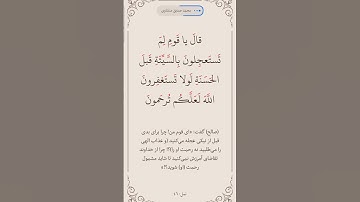 قالَ يا قَومِ لِمَ
تَستَعجِلونَ بِالسَّيِّئَةِ قَبلَ
الحَسَنَةِ لَولا تَستَغفِرونَ
اللَّهَ لَعَلَّكُم تُرحَمونَ
(صالح) گفت: «ای قوم من! چرا برای بدی
قبل از نیکی عجله می‌کنید (و عذاب الهی
را می‌طلبید نه رحمت او را)؟! چرا از خداوند
تقاضای آمرزش نمی‌کنید تا شاید مشمول
رحمت (او) شوید؟!»
نمل ۴۶